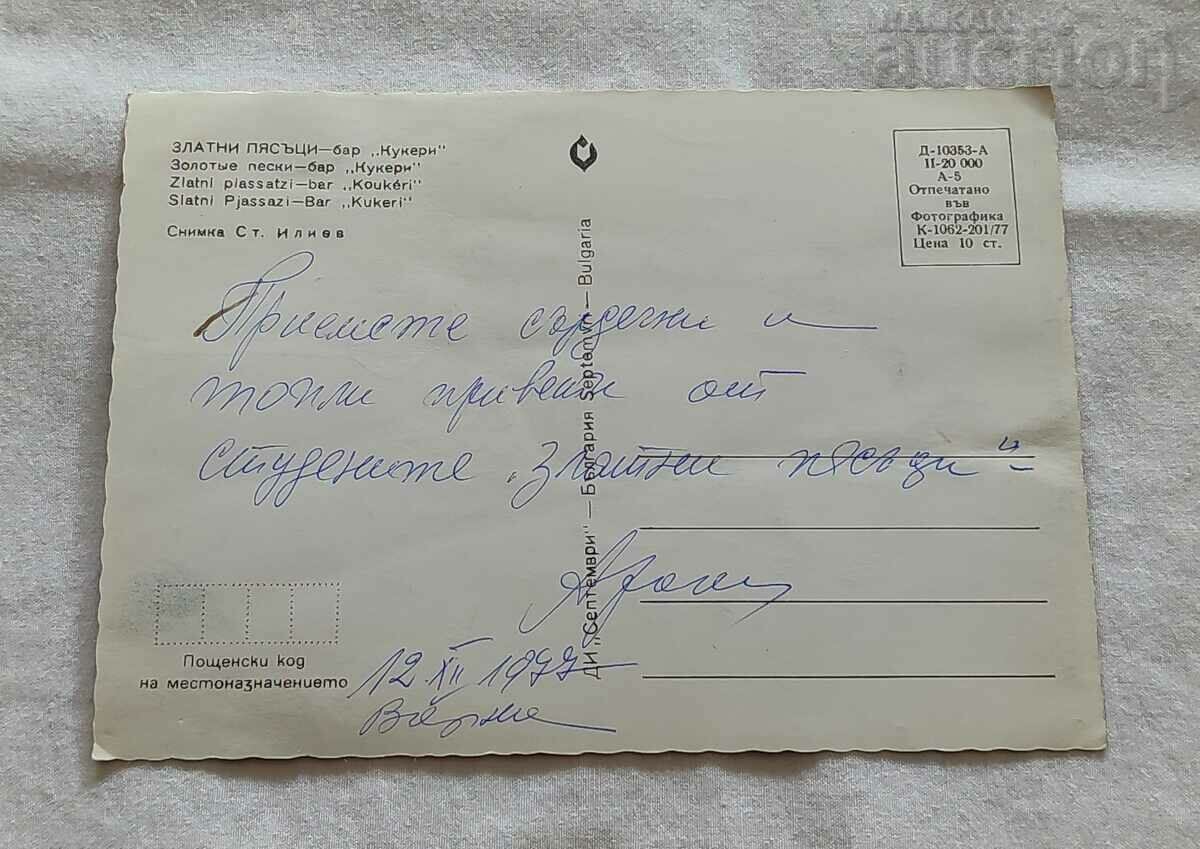 ЗЛАТНИ ПЯСЪЦИ—бар „Кукери"
Золотые пески—бар „Кукери"
Zlatni plassatzi—bar „Koukéri"
Slatni Pjassazi—Bar „Kukeri"
Снимка Ст. Илиев
Д-10353-А
II-20 000
А-5
Отпечатано
във
Фотографика
К-1062-201/77
Цена 10 ст.
ДИ „Септември" — България Septemvri — Bulgaria
Приемете сърдечни и
топли привети от
студените „Златни пясъци"
12 XII 1977
Варна
Пощенски код
на местоназначението